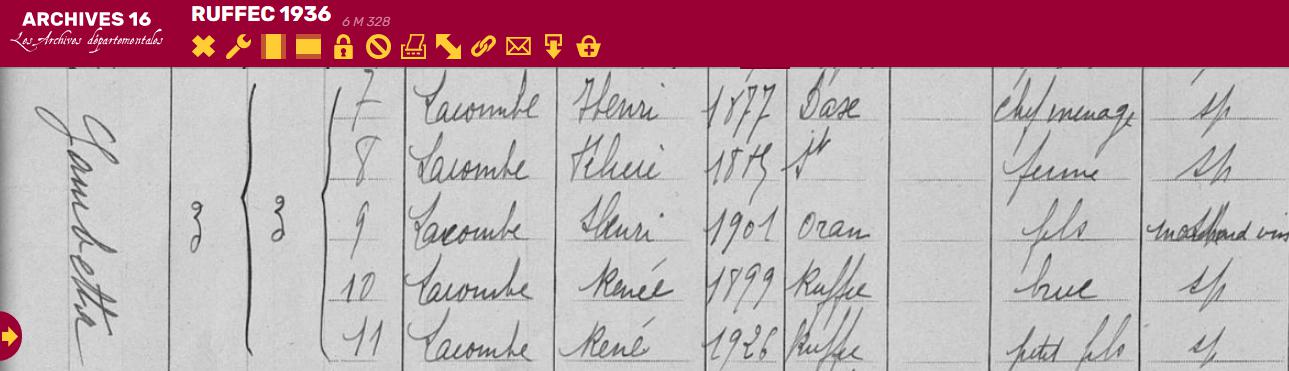 ARCHIVES 16
Les Archives départementales
RUFFEC 1936 6 M 328
Gambetta
3 3
7 Lacombe Henri 1877 Dax chef menage sp
8 Lacombe 18 femme sp
9 Lacombe Henri 1901 Oran fils marchand vins
10 Lacombe Renée 1899 Ruffec brue sp
11 Lacombe René 1926 Ruffec petit fils sp